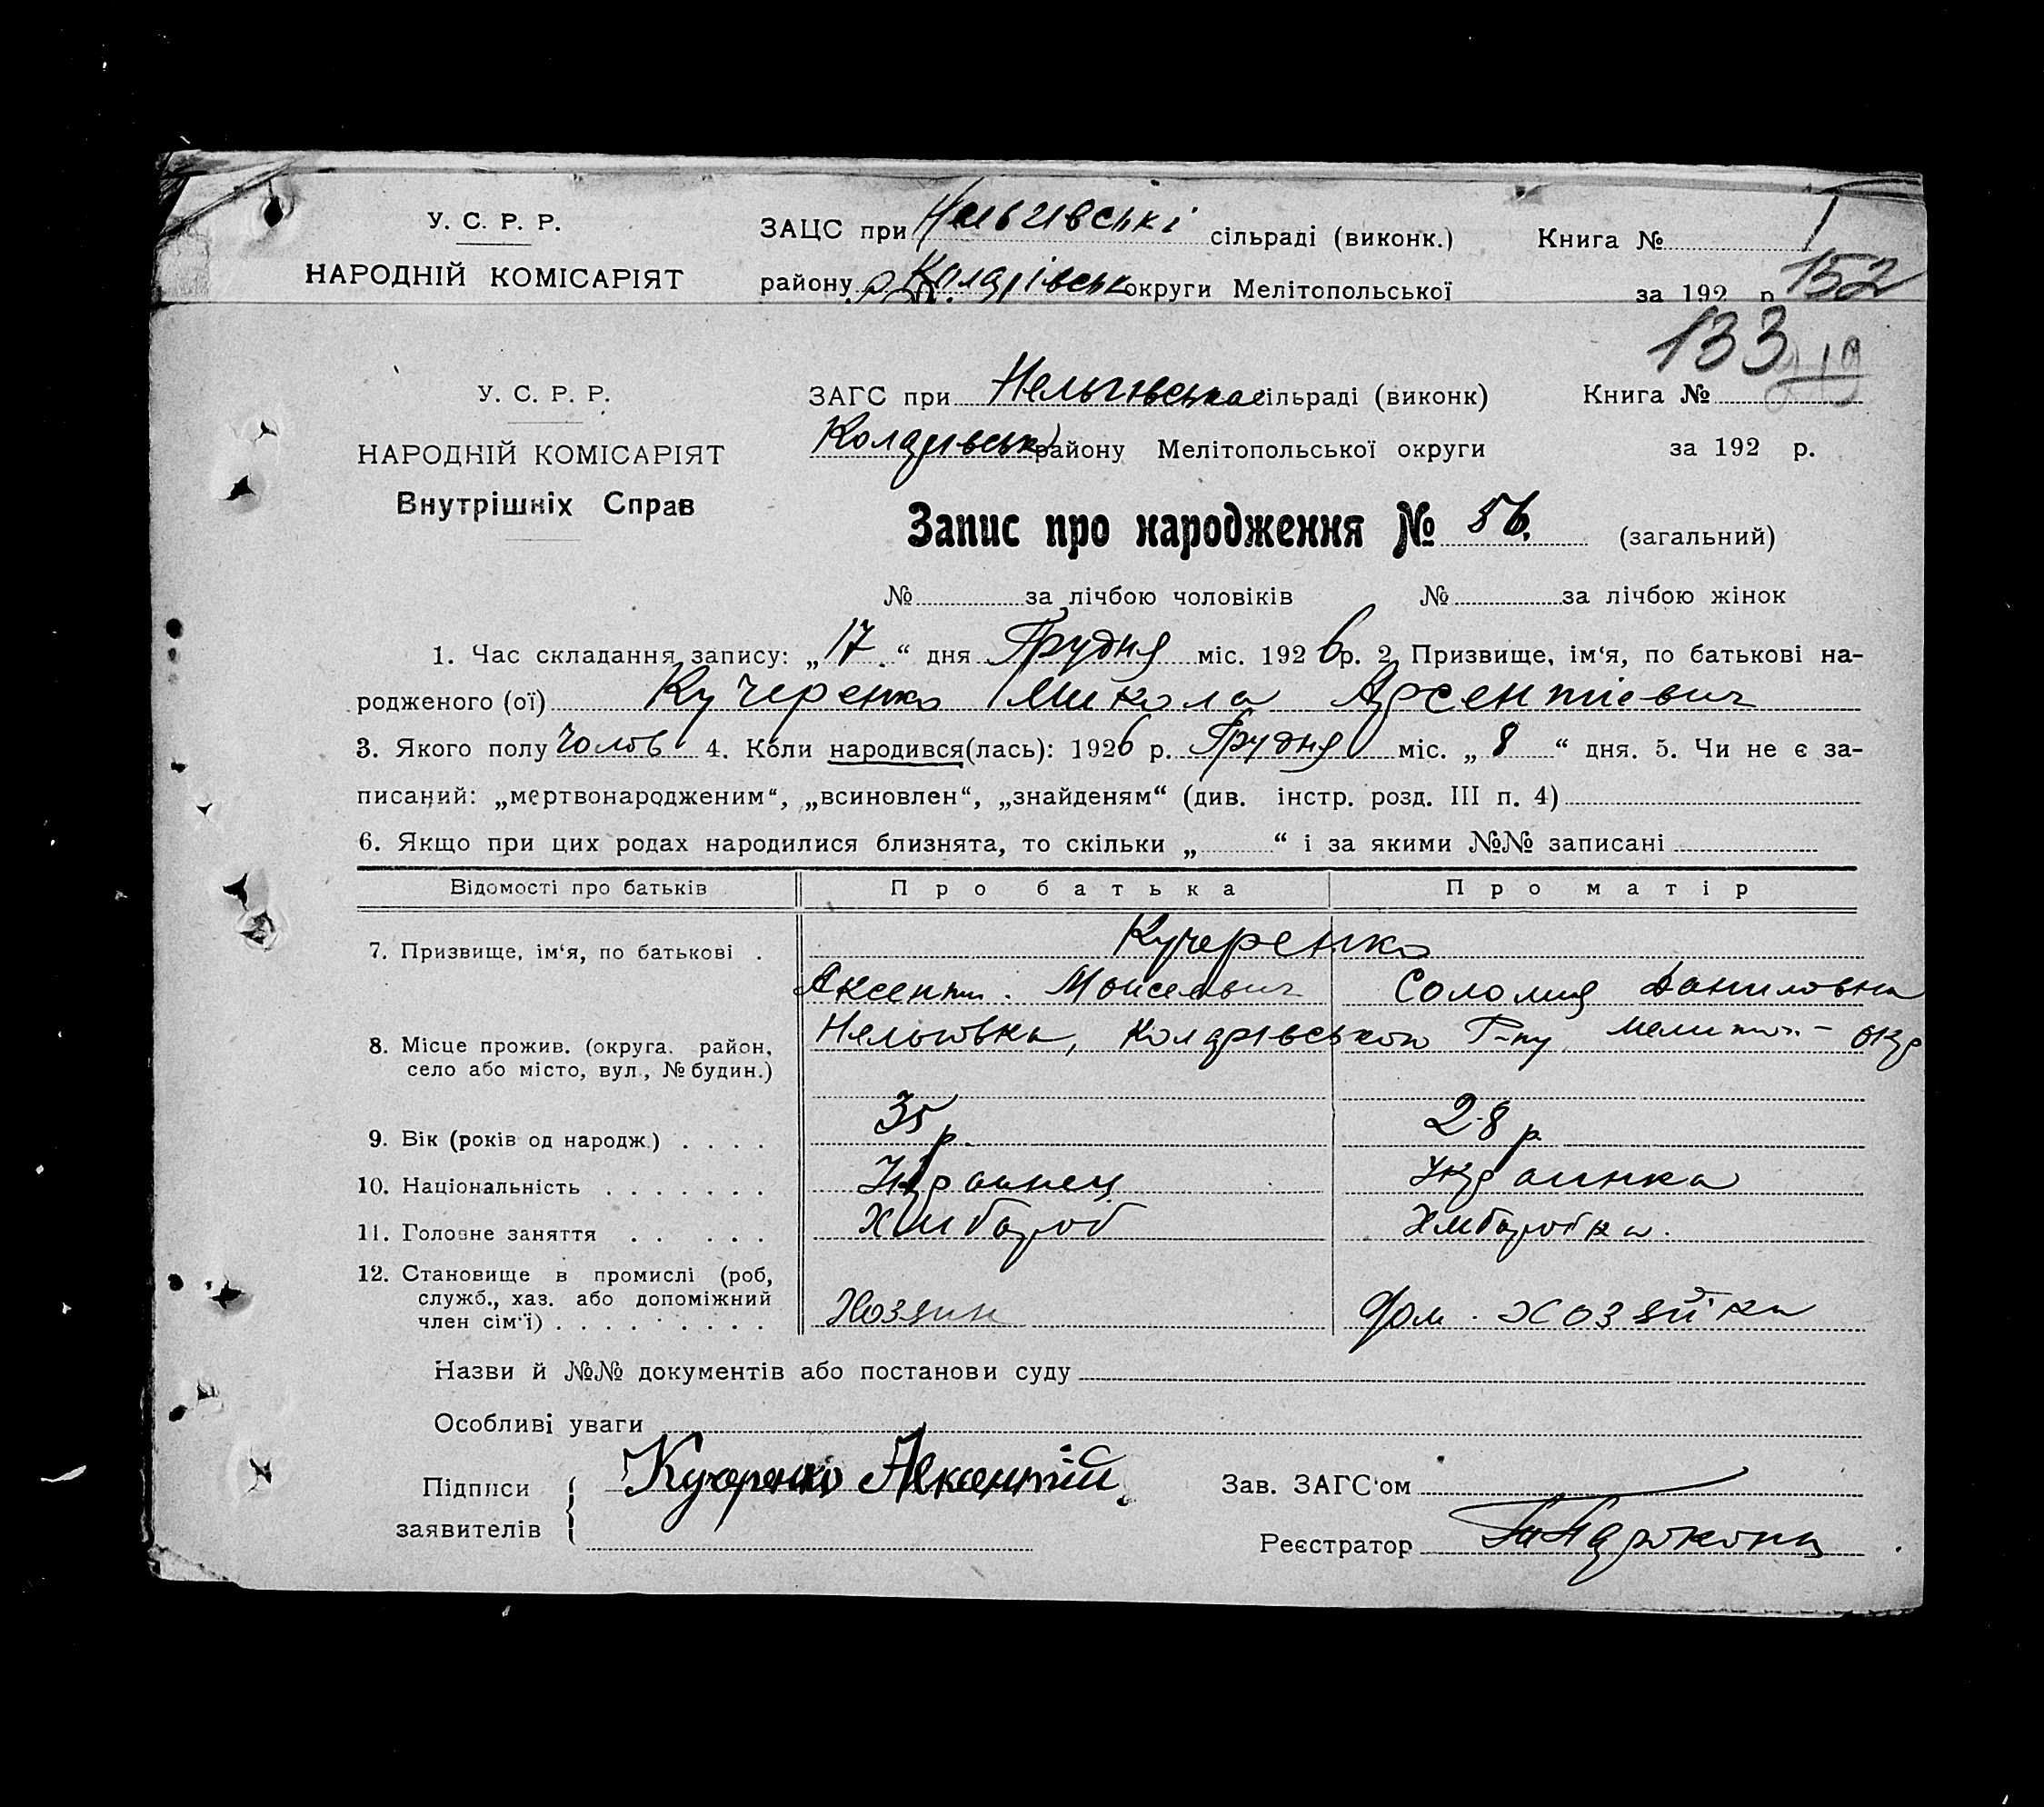 У. С. Р. Р.
НАРОДНІЙ КОМІСАРІЯТ
ЗАЦС при Нельгівські сільраді (виконк.) Книга №
району Коларівськ округи Мелітопольської за 192 р. 152
133
У. С. Р. Р.
НАРОДНІЙ КОМІСАРІЯТ
Внутрішніх Справ
ЗАГС при Нельгівська сільраді (виконк) Книга №
Коларівськ району Мелітопольської округи за 192 р.
Запис про народження № 56. (загальний)
№ за лічбою чоловіків № за лічбою жінок
1. Час складання запису: „17“ дня Грудня міс. 1926 р. 2 Призвище, ім‘я, по батькові на-
родженого (ої) Кучеренко Микола Арсентіевич
3. Якого полу Чолов 4. Коли народився(лась): 1926 р. Грудня міс. „8“ дня. 5. Чи не є за-
писаний: „мертвонародженим“, „всиновлен“, „знайденям“ (див. інстр. розд. III п. 4)
6. Якщо при цих родах народилися близнята, то скільки „ “ і за якими №№ записані
Відомості про батьків Про батька Про матір
7. Призвище, ім‘я, по батькові . Кучеренко
Аксенти. Моисеевич Соломия Даниловна
8. Місце прожив. (округа. район, село або місто, вул., № будин.) Нельговка, Коларівського Р-ну Мелитоп- окр
9. Вік (років од народж.) . . . . 35 р. 28 р
10. Національність . . . . . . . Украинец Украинка
11. Головне заняття . . . . . Хлібороб Хліборобка.
12. Становище в промислі (роб,
служб., хаз. або допоміжний
член сім‘ї) . . . . . . . . . Хозяин Дом. хозяйка
Назви й №№ документів або постанови суду
Особливі уваги
Підписи
заявителів
Кучеренко Аксентій.
Зав. ЗАГС‘ом
Реєстратор